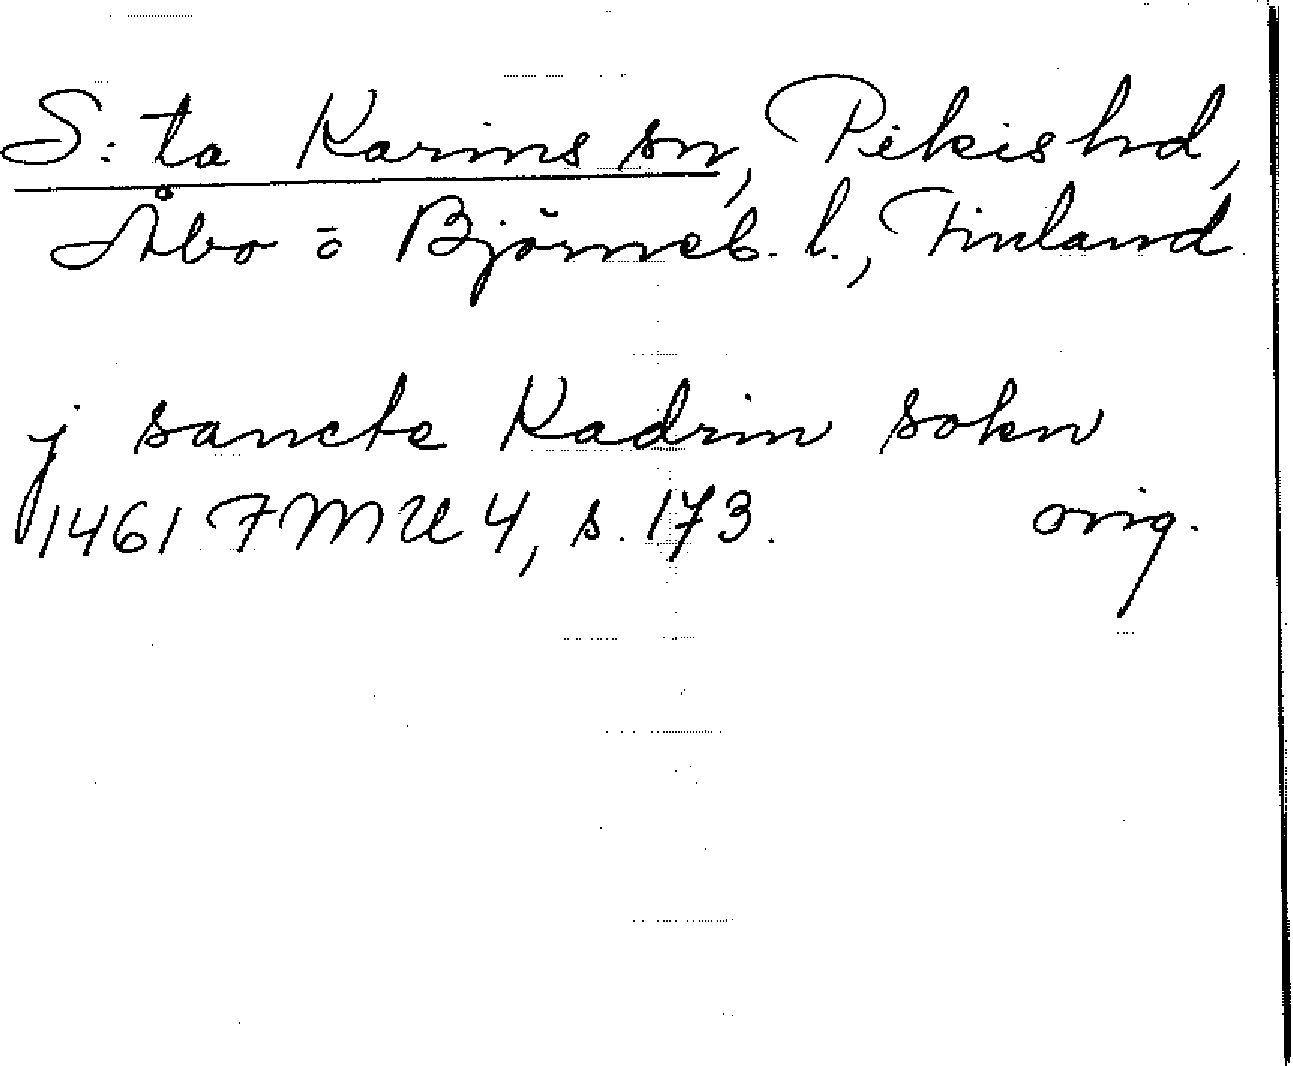 S:ta Karins sn, Pikis hd,
Åbo o Björneb. l., Finland
j sancte Kadrin sokn
1461 FMU 4, s. 173. orig.